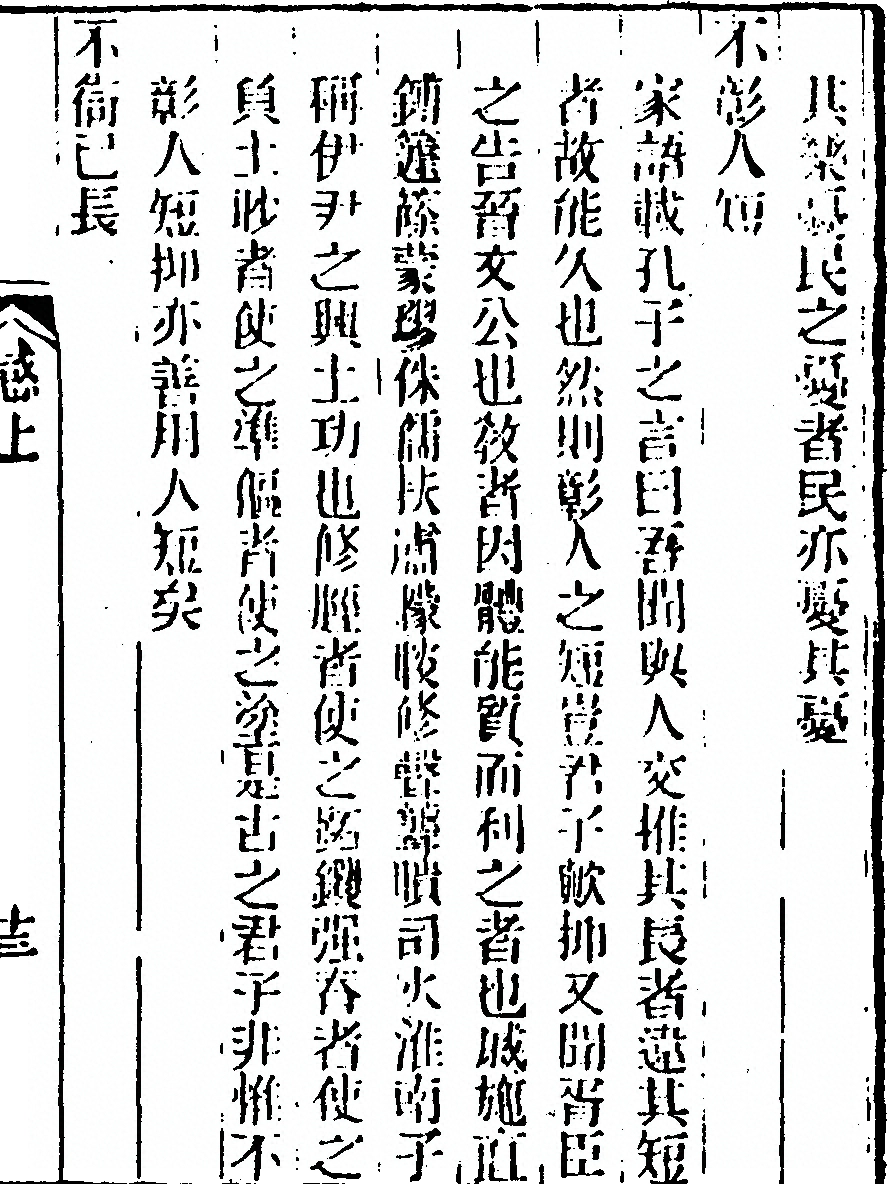 其樂憂民之憂者民亦憂其憂
不彰人短
家語載孔子之言曰吾聞與人交推其長者違其短
者故能久也然則彰人之短豈君子歟抑又聞胥臣
之告晉文公也教者因體能質而利之者也戚施直
鎛籧篨蒙璆侏儒扶盧矇瞍修聲聾聵司火淮南子
稱伊尹之興土功也修脛者使之跖钁强脊者使之
負土眇者使之準傴者使之塗是古之君子非惟不
彰人短抑亦善用人短矣
不衒己長
感上